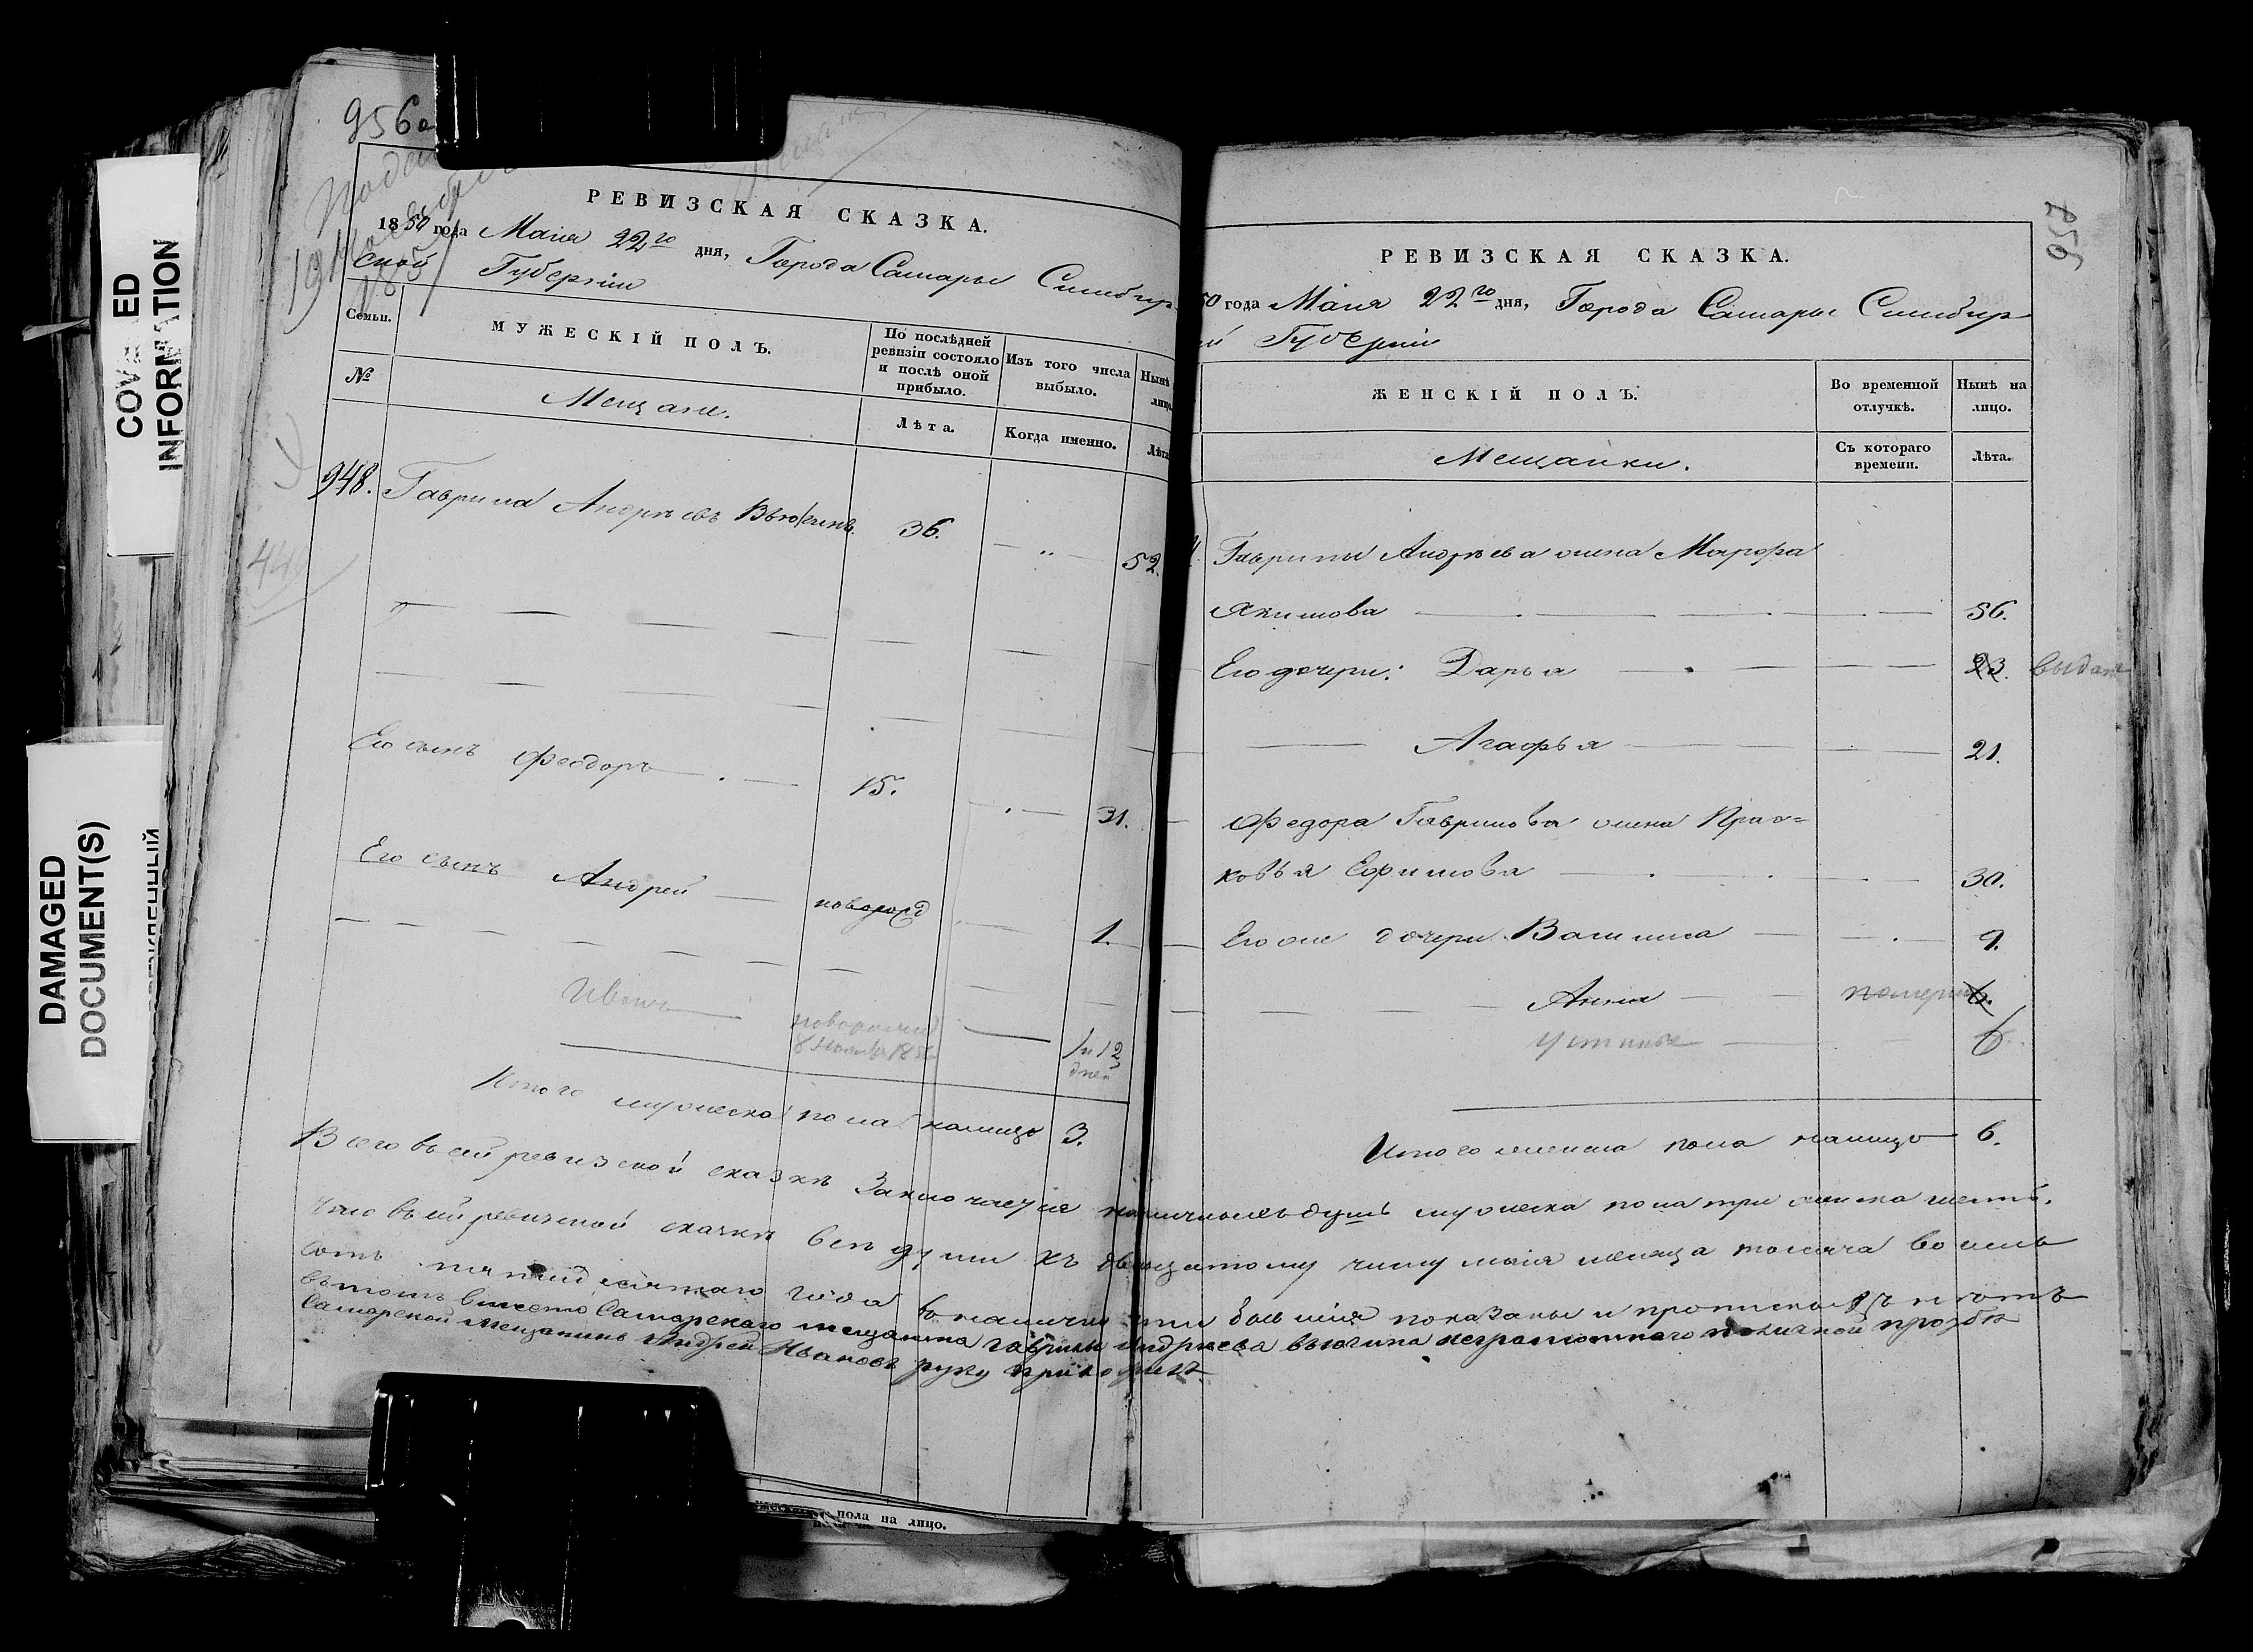 COVERED
INFORMATION
DAMAGED
DOCUMENT(S)
956
РЕВИЗСКАЯ СКАЗКА.
1850 года Маія 22го дня, Города Самары Симбир
ской Губерніи
Семьи.
МУЖЕСКІЙ ПОЛЪ.
По послѣдней ревизіи состояло и послѣ оной прибыло.
Изъ того числа выбыло.
Нынѣ
лицо
№
Мещане.
Лѣта.
Когда именно.
Лѣта
948. Гаврила Андреевъ Вьюгинъ. 36. 52.
Его сынъ Феодоръ 15. 31.
Его сынъ Андрей новорожд 1.
Иванъ новорожден 1 и 12
дней
Итого мужеска пола налицо 3.
956
РЕВИЗСКАЯ СКАЗКА.
50 года Маія 22го дня, Города Самары Симбир
й Губерніи
ЖЕНСКІЙ ПОЛЪ.
Во временной отлучкѣ.
Нынѣ на лицо.
Мещанки.
Съ котораго времени.
Лѣта.
Гаврилы Андреева жена Марфа
Якимова 56.
Его дочери: Дарья 23. выдана
Агафья 21.
Федора Гаврилова жена Прас=
ковья Ефимова 30.
Его же дочери Васимиса 9.
Анна померла 6.
Устинья 6.
Итого женска пола налицо 6.
Всего въ сей ревизской сказкѣ Заключается наличныхъ душъ мужеска пола три женска шесть.
Что въ сей ревизской сказкѣ всѣ души къ двадцатому числу маія месяца тысяча восемь
сотъ пятидесятаго года въ наличіи бывшія показаны и прописныхъ нѣтъ
въ томъ вместо Самарскаго мещанина Гаврилы Андреева вьюгина неграмотнаго по личной прозбѣ
Самарской мещанинъ Андрей Ивановъ руку приложилъ
пола на лицо.